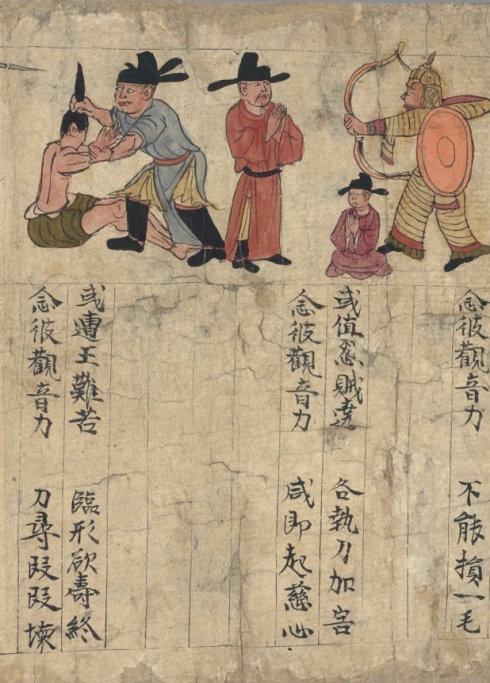 念彼觀音力 不能損一毛
或值怨賊遶 各執刀加害
念彼觀音力 咸即起慈心
或遭王難苦 臨形欲壽終
念彼觀音力 刀尋段段壞